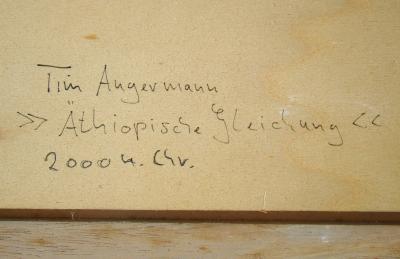 Tim Angermann
>> Äthiopische Gleichung <<
2000 n. Chr.